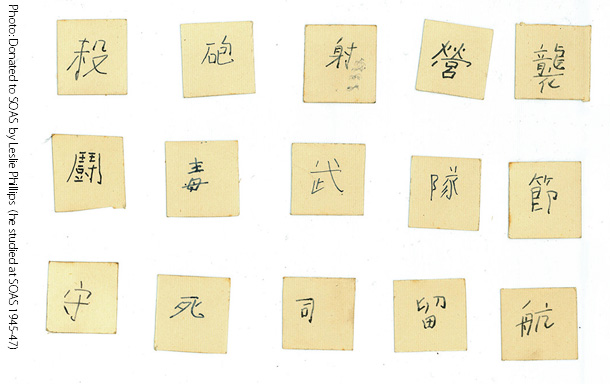 Photo: Donated to SOAS by Leslie Phillips (he studied at SOAS 1945-47)
殺 砲 射 營 襲
鬪 毒 武 隊 節
守 死 司 留 航